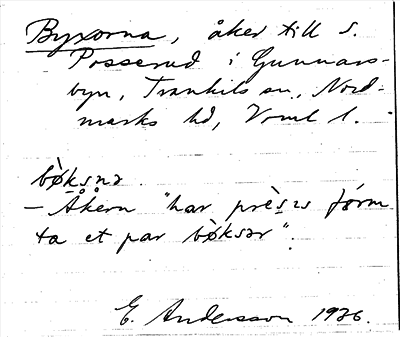 Byxorna, åker till S.
Posserud i Gunnars-
byn, Trankils sn, Nord-
marks hd, Vrml l.
bø̀ksnɑ.
— Åkern "har prèsis form
ta et par bø̀ksər".
E. Andersson 1926.